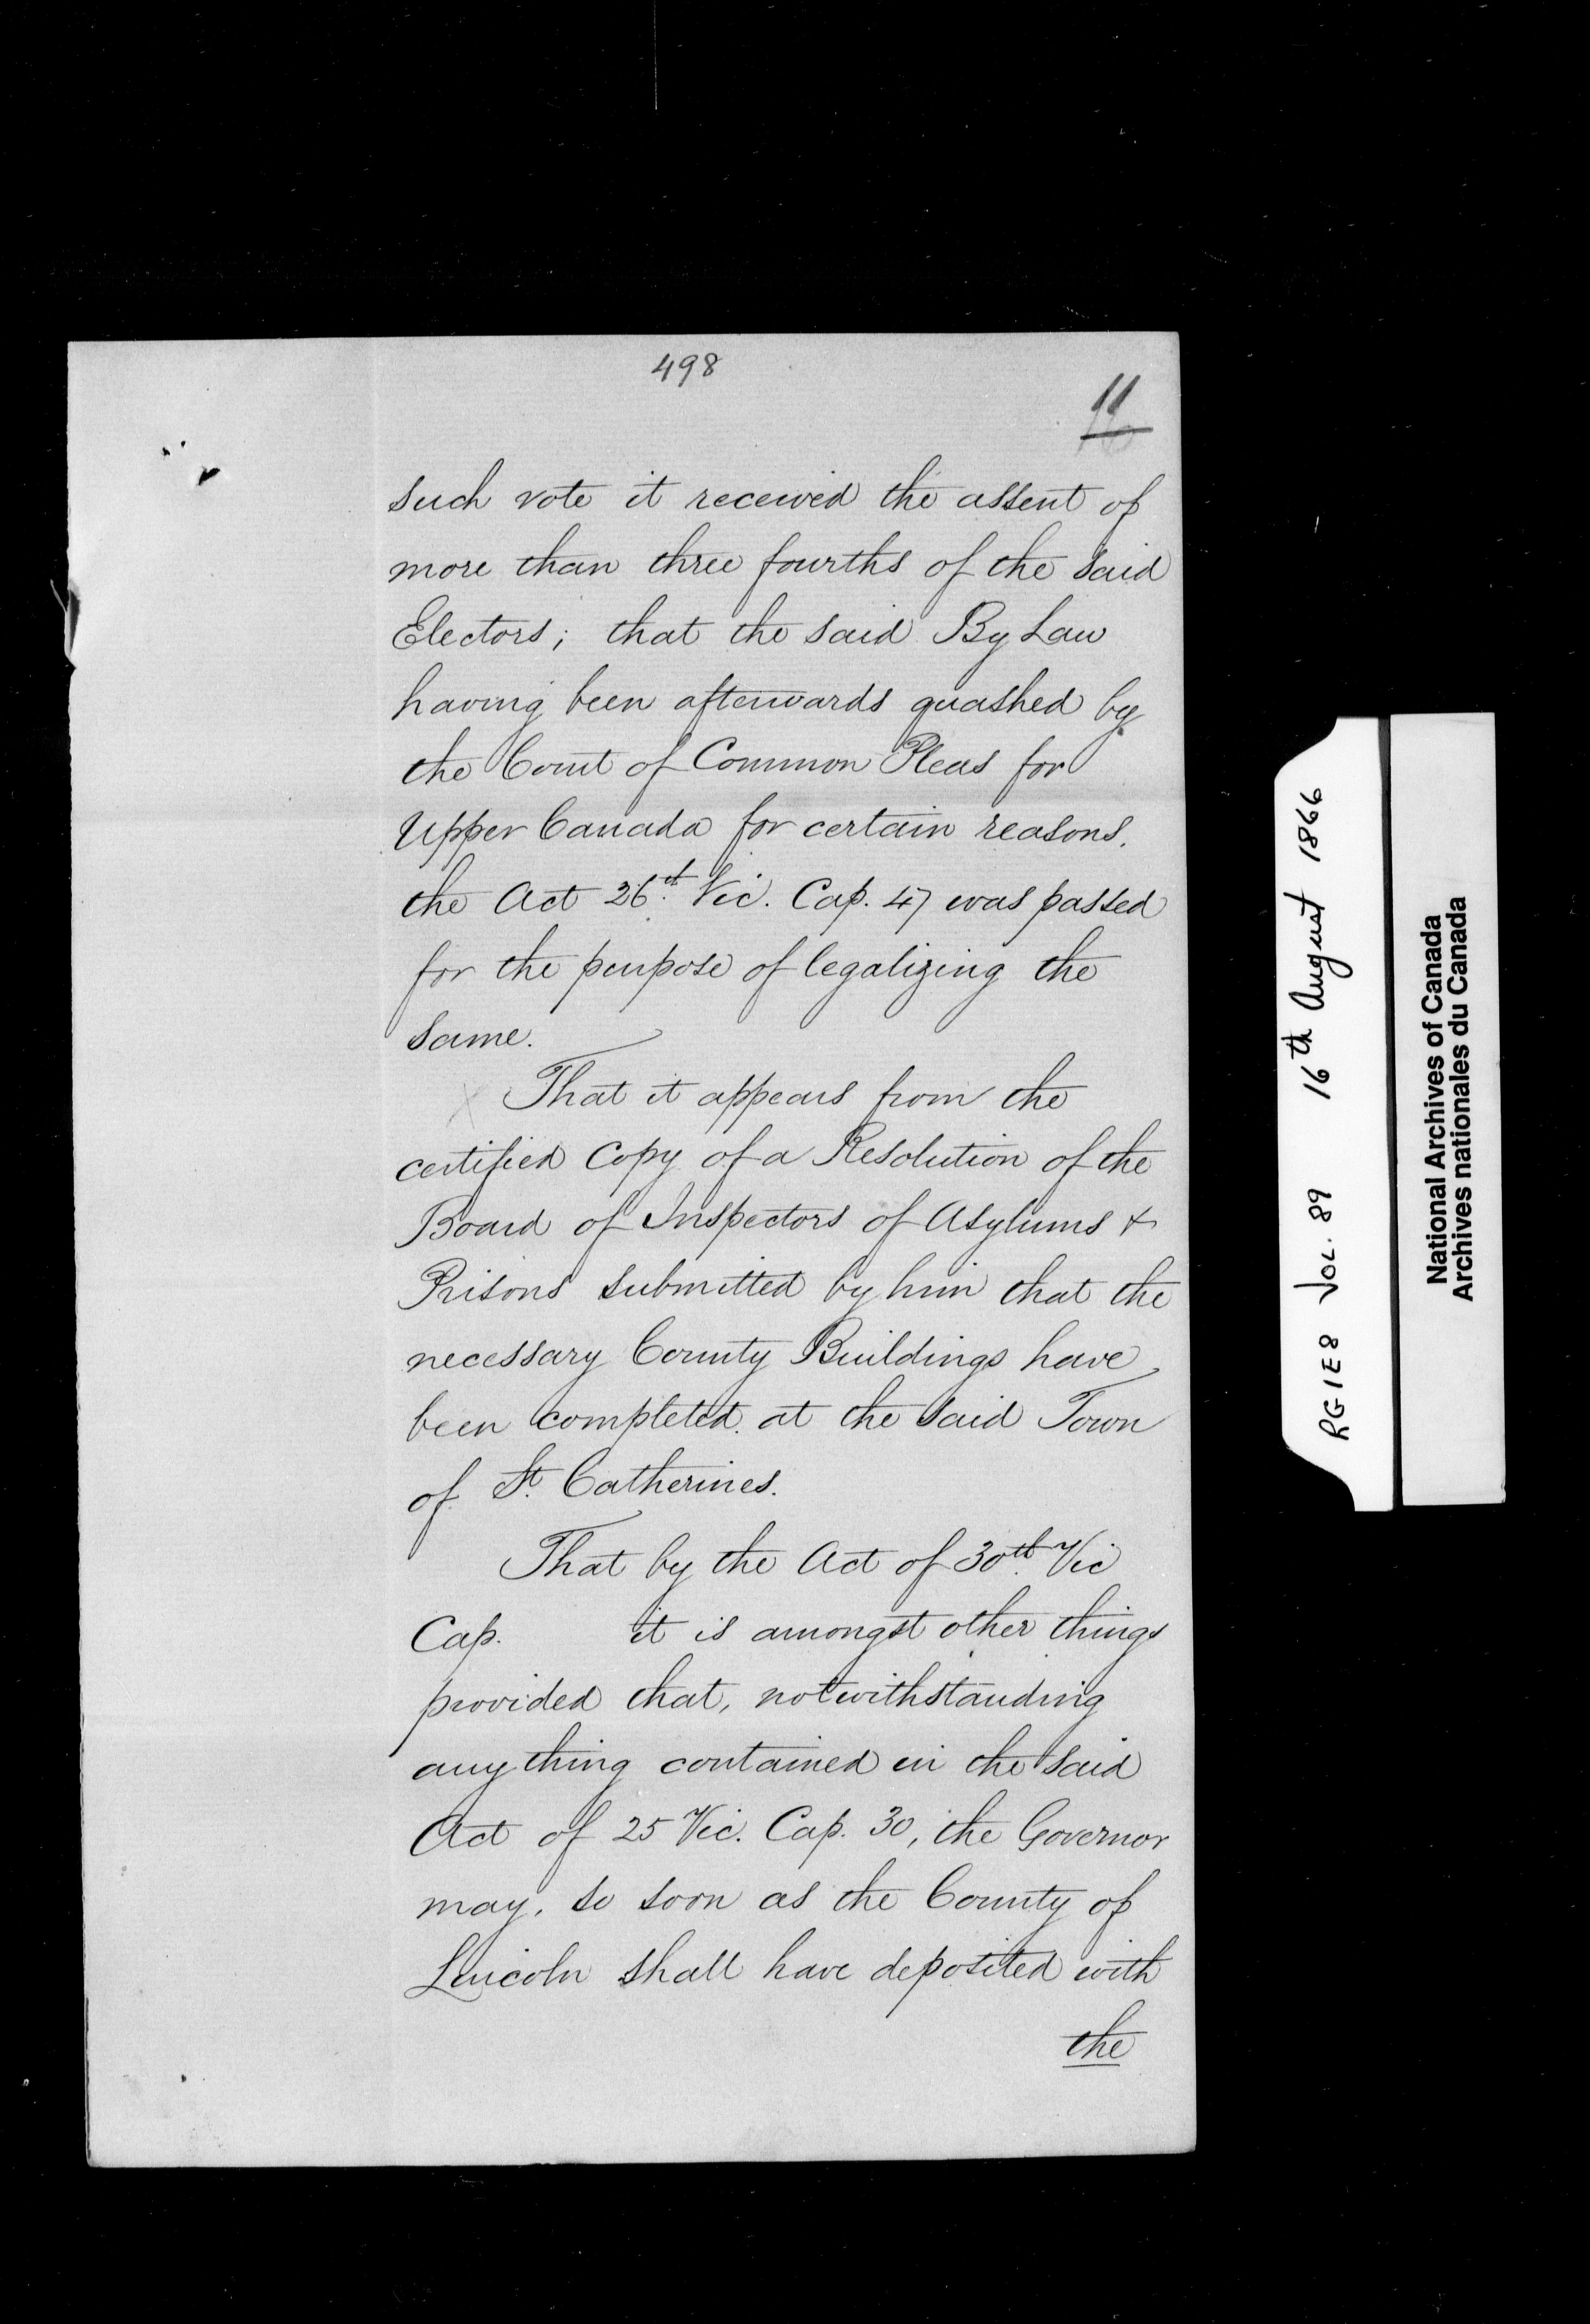 498
11
such vote it received the assent of
more than three fourths of the said
Electors; that the said By Law
having been afterwards quashed by
the Court of Common Pleas for
Upper Canada for certain reasons,
the Act 26th Vic. Cap. 47 was passed
for the purpose of legalizing the
same.
That it appears from the
certified Copy of a Resolution of the
Board of Inspectors of Asylums &
Prisons submitted by him that the
necessary County Buildings have
been completed at the said Town
of St. Catherines.
That by the Act of 30th Vic
Cap. it is amongst other things
provided that, notwithstanding
any thing contained in the said
Act of 25 Vic. Cap. 30, the Governor
may, so soon as the County of
Lincoln shall have deposited with
the
RG1E8 VOL. 89 16th August 1866
National Archives of Canada
Archives nationales du Canada